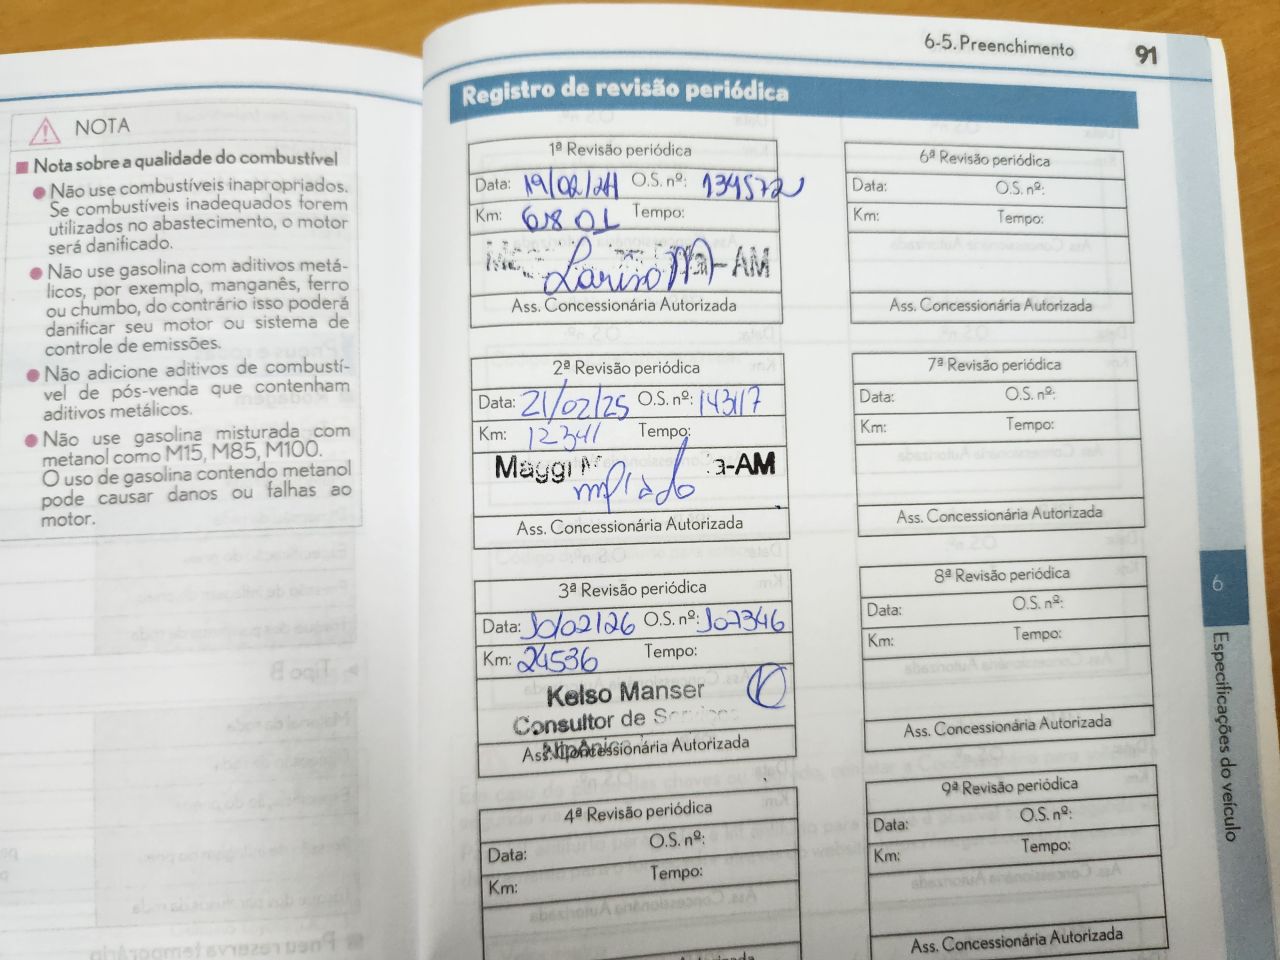 NOTA
Nota sobre a qualidade do combustível
Não use combustíveis inapropriados.
Se combustíveis inadequados forem
utilizados no abastecimento, o motor
será danificado.
Não use gasolina com aditivos metá-
licos, por exemplo, manganês, ferro
ou chumbo, do contrário isso poderá
danificar seu motor ou sistema de
controle de emissões.
Não adicione aditivos de combustí-
vel de pós-venda que contenham
aditivos metálicos.
Não use gasolina misturada com
metanol como M15, M85, M100.
O uso de gasolina contendo metanol
pode causar danos ou falhas ao
motor.
6-5. Preenchimento 91
Registro de revisão periódica
1ª Revisão periódica
Data: 19/02/24 O.S. nº: 134572
Km: Tempo:
-AM
Ass. Concessionária Autorizada
2ª Revisão periódica
Data: 21/02/25 O.S. nº: 143117
Km: 12341 Tempo:
Maggi M a-AM
Ass. Concessionária Autorizada
3ª Revisão periódica
Data: 10/02/26 O.S. nº: 107346
Km: 24536 Tempo:
Kelso Manser
Consultor de Serviços
Ass. Concessionária Autorizada
4ª Revisão periódica
Data: O.S. nº:
Km: Tempo:
6ª Revisão periódica
Data: O.S. nº:
Km: Tempo:
Ass. Concessionária Autorizada
7ª Revisão periódica
Data: O.S. nº:
Km: Tempo:
Ass. Concessionária Autorizada
8ª Revisão periódica
Data: O.S. nº:
Km: Tempo:
Ass. Concessionária Autorizada
9ª Revisão periódica
Data: O.S. nº:
Km: Tempo:
Ass. Concessionária Autorizada
6
Especificações do veículo